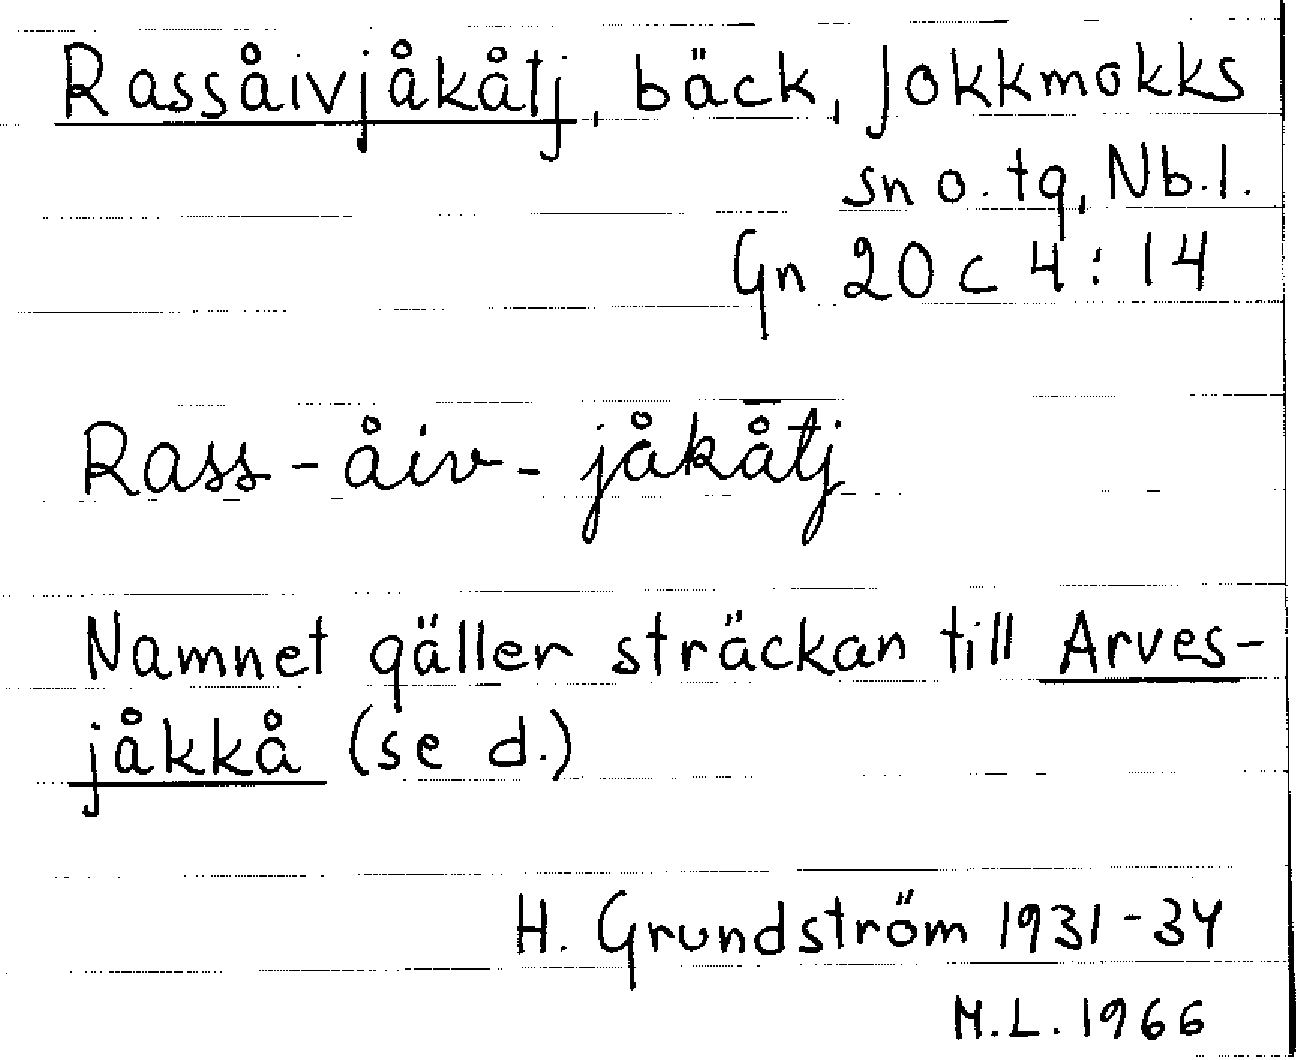 Rassåivjåkåtj, bäck, Jokkmokks
sn o. tg, Nb.l.
Gn 20 c 4 : 14
Rass - åiv - jåkåtj
Namnet gäller sträckan till Arves-
jåkkå (se d.)
H. Grundström 1931 - 34
M.L. 1966